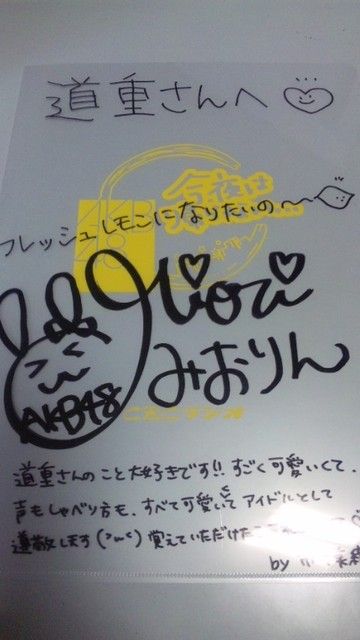 道重さんへ
今夜は
フレッシュレモンになりたいの〜
Miori
みおりん
AKB48
道重さんのこと大好きです!! すごく可愛いくて、
声もしゃべり方も、すべて可愛いくて アイドルとして
尊敬します(>ω<) 覚えていただけた
by